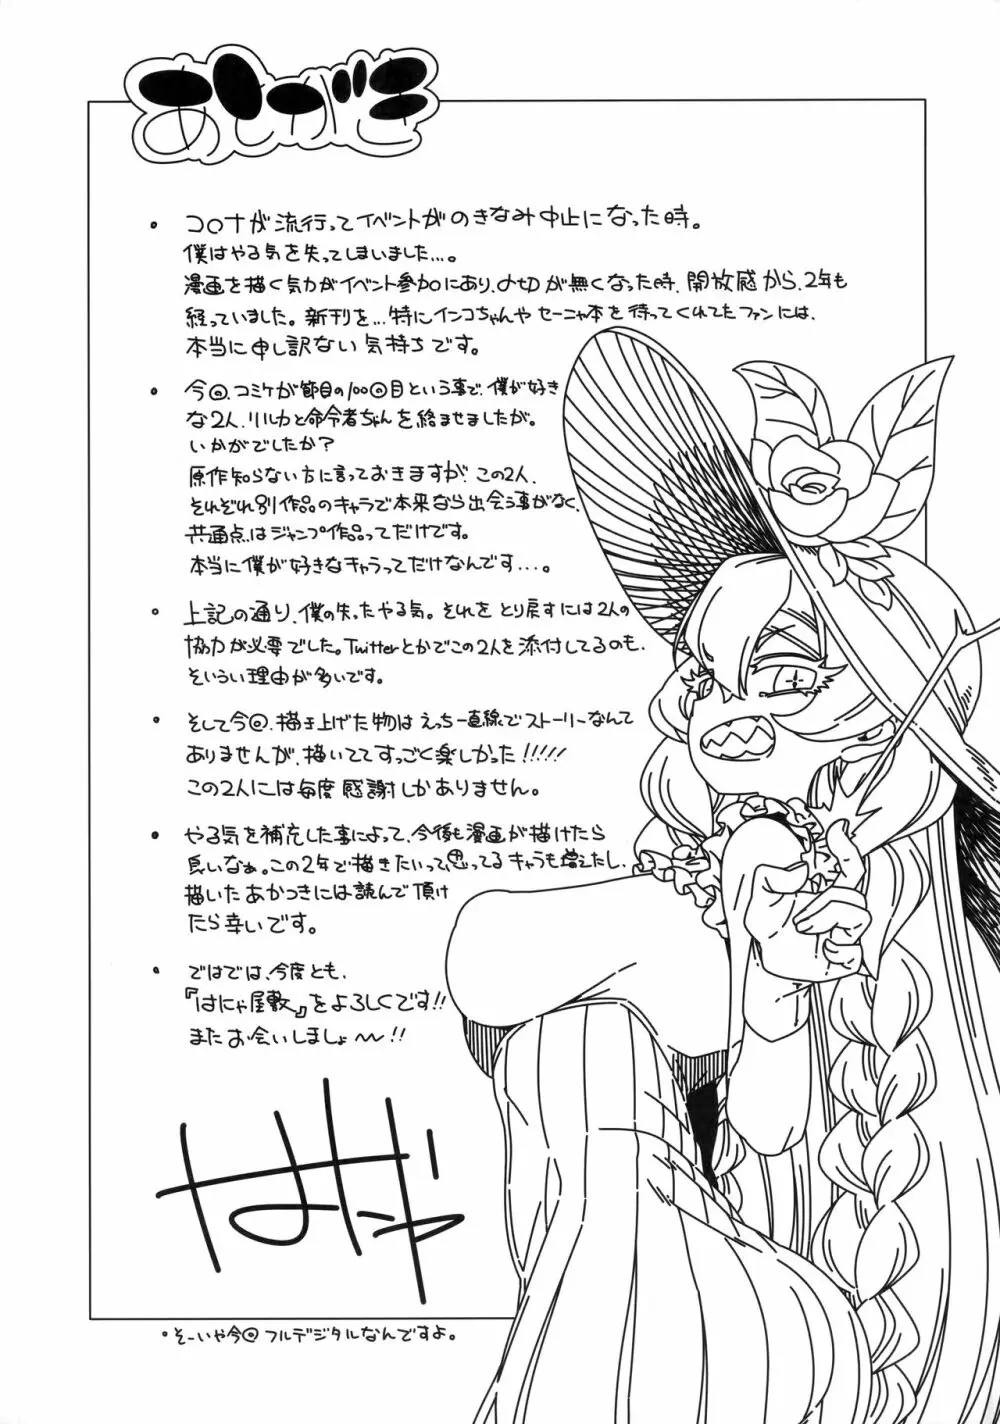 あとがき
・コロナが流行ってイベントがのきなみ中止になった時。
僕はやる気を失ってしまいました...。
漫画を描く気力がイベント参加にあり、〆切が無くなった時、開放感から、2年も
経っていました。新刊を...特にインコちゃんやセーニャ本を待ってくれてたファンには、
本当に申し訳ない気持ちです。
・今回、コミケが節目の100回目という事で、僕が好き
な2人、リルカと命令者ちゃんを絡ませましたが。
いかがでしたか?
原作知らない方に言っておきますが、この2人、
それぞれ別作品のキャラで本来なら出会う事がなく、
共通点はジャンプ作品ってだけです。
本当に僕が好きなキャラってだけなんです...。
・上記の通り、僕の失ったやる気。それをとり戻すには2人の
協力が必要でした。Twitterとかでこの2人を添付してるのも、
そいうい理由が多いです。
・そして今回、描き上げた物はえっち一直線でストーリーなんて
ありませんが、描いててすっごく楽しかった!!!!!
この2人には毎度感謝しかありません。
・やる気を補充した事によって、今後も漫画が描けたら
良いなぁ。この2年で描きたいって思ってるキャラも増えたし、
描いたあかつきには読んで頂け
たら幸いです。
・ではでは、今度とも、
『はにゃ屋敷』をよろしくです!!
またお会いしましょ〜!!
・そーいや今回フルデジタルなんですよ。